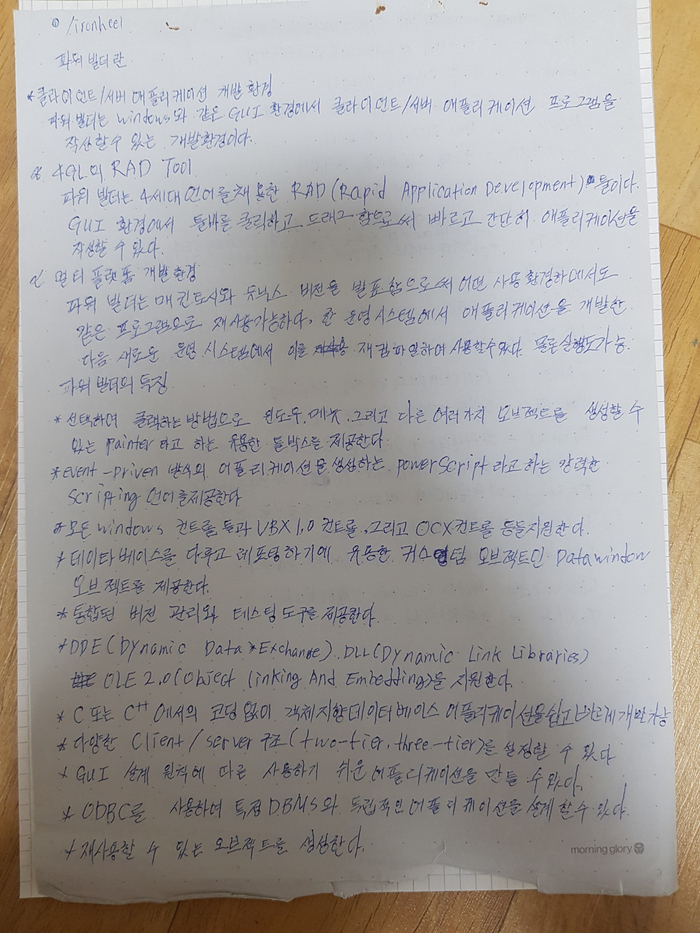 /ironheel
파워 빌더란
* 클라이언트/서버 애플리케이션 개발 환경
파워 빌더는 windows와 같은 GUI 환경에서 클라이언트/서버 애플리케이션 프로그램을
작성할 수 있는 개발환경이다.
* 4GL의 RAD Tool
파워 빌더는 4세대 언어를 채용한 RAD(Rapid Application Development) 툴이다.
GUI 환경에서 툴바를 클릭하고 드래그 함으로써 빠르고 간단히 애플리케이션을
작성할 수 있다.
멀티 플랫폼 개발 환경
파워 빌더는 매킨토시와 유닉스 버전을 발표함으로써 어떤 사용 환경하에서도
같은 프로그램으로 재사용가능하다. 한 운영시스템에서 애플리케이션을 개발한
다음 새로운 운영 시스템에서 이를 재컴파일하여 사용할수있다. 물론실행도가능.
파워 빌더의 특징
* 선택하여 클릭하는 방법으로 윈도우, 메뉴, 그리고 다른 여러가지 오브젝트를 생성할 수
있는 painter라고 하는 유용한 툴박스를 제공한다
* event-driven 방식의 어플리케이션을 생성하는 powerScript라고 하는 강력한
scripting 언어를제공한다
* 모든 windows 컨트롤들과 VBX 1.0 컨트롤, 그리고 OCX컨트롤 등을지원한다.
* 데이타베이스를 다루고 레포팅하기에 유용한 커스텀 오브젝트인 Datawindow
오브젝트를 제공한다.
* 통합된 버전 관리와 테스팅 도구를 제공한다.
* DDE(Dynamic Data Exchange). DLL(Dynamic Link Libraries)
OLE 2.0(Object Linking And Embedding)을 지원한다.
* C 또는 C++에서의 코딩 없이 객체지향데이터베이스 어플리케이션을쉽고 빠르게개발가능
* 다양한 Client/server 구조(two-tier, three-tier)를 설정할 수 있다
* GUI 설계 원칙에 따른 사용하기 쉬운 어플리케이션을 만들 수 있다.
* ODBC를 사용하여 특정 DBMS와 독립적인 어플리케이션을 설계 할 수 있다.
* 재사용할 수 있는 오브젝트를 생성한다.
morning glory